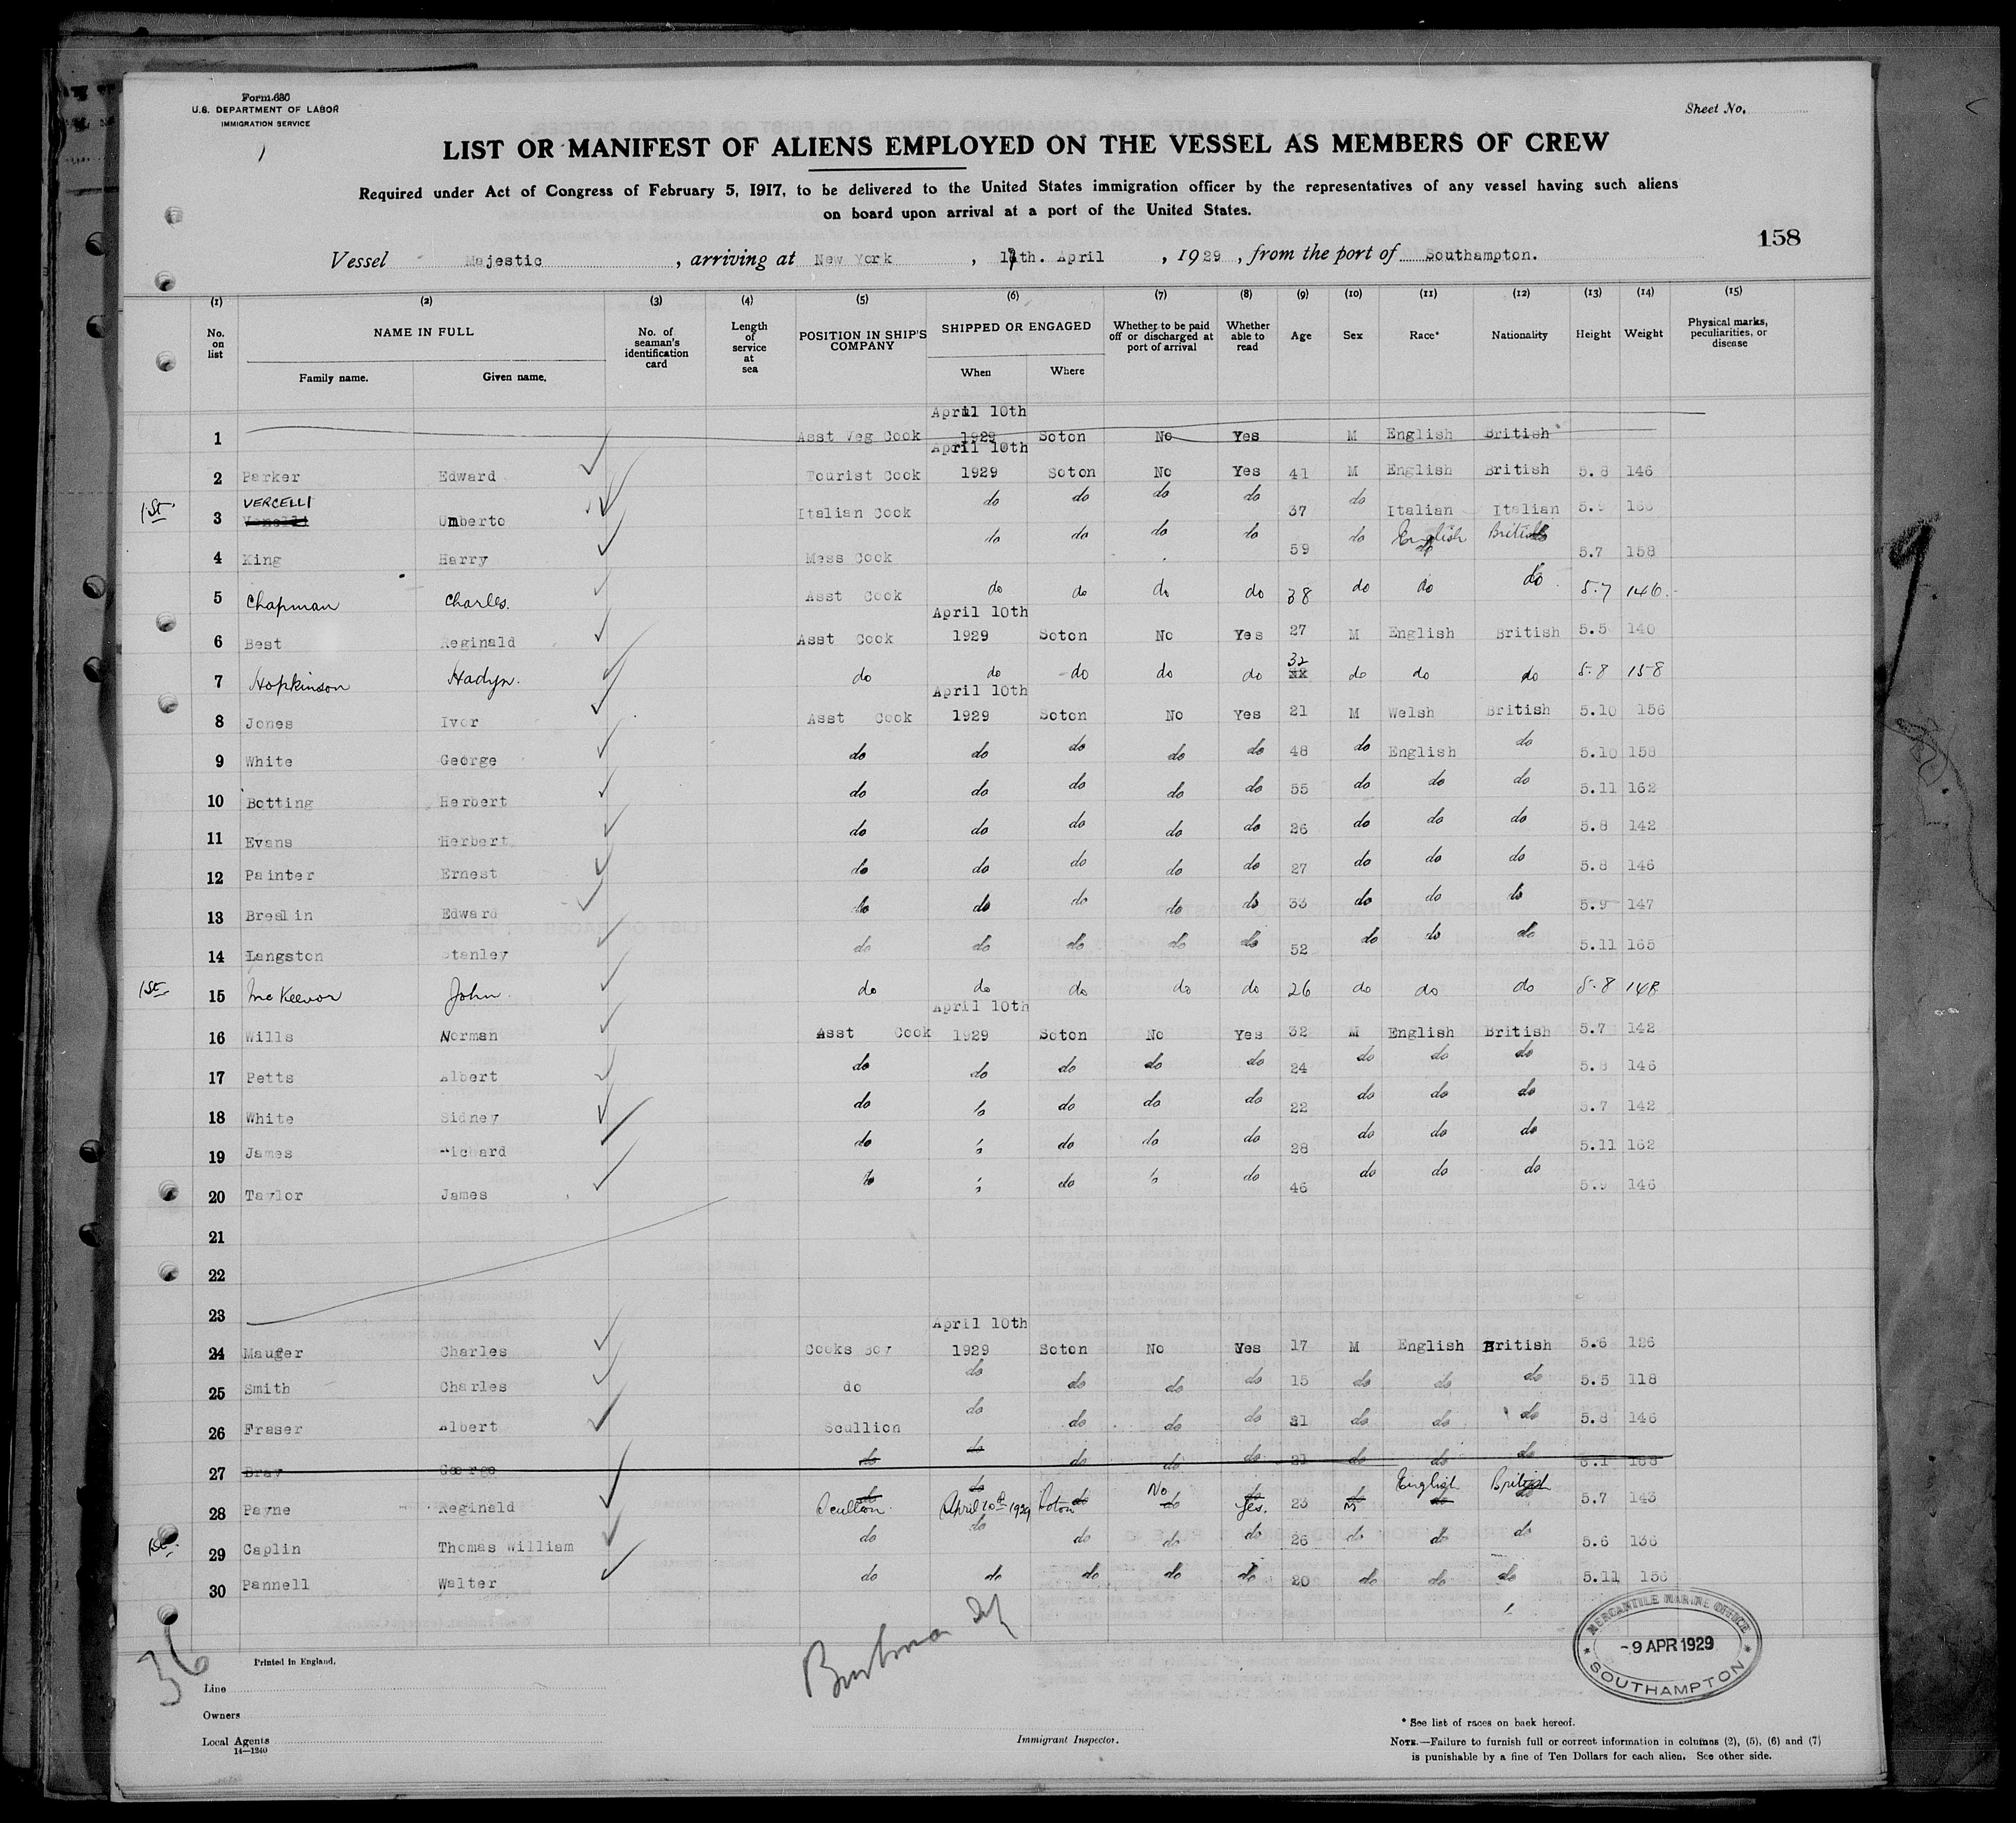 Form 680
U.S. DEPARTMENT OF LABOR
IMMIGRATION SERVICE
Sheet No.
LIST OR MANIFEST OF ALIENS EMPLOYED ON THE VESSEL AS MEMBERS OF CREW
Required under Act of Congress of February 5, 1917, to be delivered to the United States immigration officer by the representatives of any vessel having such aliens
on board upon arrival at a port of the United States.
158
Vessel Majestic , arriving at New York , th. April , 1929 , from the port of Southampton.
(1) (2) (3) (4) (5) (6) (7) (8) (9) (10) (11) (12) (13) (14) (15)
No. on list NAME IN FULL No. of seaman's identification card Length of service at sea POSITION IN SHIP'S COMPANY SHIPPED OR ENGAGED Whether to be paid off or discharged at port of arrival Whether able to read Age Sex Race* Nationality Height Weight Physical marks, peculiarities, or disease
Family name. Given name. When Where
April 10th
1 Asst Veg Cook 1929 Soton No Yes M English British
April 10th
2 Parker Edward Tourist Cook 1929 Soton No Yes 41 M English British 5.8 146
1st VERCELLI
3 Umberto Italian Cook do do do do 37 do Italian Italian
4 King Harry Mess Cook do do do do 59 do English British 5.7 158
5 Chapman Charles. Asst Cook do do do do 38 do do do 5.7 146.
April 10th
6 Best Reginald Asst Cook 1929 Soton No Yes 27 M English British 5.5 140
7 Hopkinson Hadyn. do do do do do 32 do do do 5.8 158
April 10th
8 Jones Ivor Asst Cook 1929 Soton No Yes 21 M Welsh British 5.10 156
9 White George do do do do do 48 do English do 5.10 158
10 Botting Herbert do do do do do 55 do do do 5.11 162
11 Evans Herbert do do do do do 26 do do do 5.8 142
12 Painter Ernest do do do do do 27 do do do 5.8 146
13 Breslin Edward do do do do do 33 do do do 5.9 147
14 Langston Stanley do do do do do 52 do do do 5.11 165
1st 15 McKeevor John. do do do do do 26 do do do 5.8 148
April 10th
16 Wills Norman Asst Cook 1929 Soton No Yes 32 M English British 5.7 142
17 Petts Albert do do do do do 24 do do do 5.8 146
18 White Sidney do do do do do 22 do do do 5.7 142
19 James Richard do do do do 28 do do do 5.11 162
20 Taylor James do do do 46 do do do 5.9 146
21
22
23
April 10th
24 Mauger Charles Cooks Boy 1929 Soton No Yes 17 M English British 5.6 126
25 Smith Charles do do do do do 15 do do do 5.5 118
26 Fraser Albert Scullion do do do do do do do 5.8 146
27 Bray George do do do do do 21 do do do 6.1 168
28 Payne Reginald Scullion. April 10th 1929 Soton No Yes. 23 M English British 5.7 143
1st. 29 Caplin Thomas William do do do do do 26 do do do 5.6 136
30 Pannell Walter do do do do do 20 do do do 5.11
MERCANTILE MARINE OFFICE
-9 APR 1929
SOUTHAMPTON
36
Printed in England.
Line
Owners
Local Agents
14—1240
Immigrant Inspector.
* See list of races on back hereof.
NOTE.—Failure to furnish full or correct information in columns (2), (5), (6) and (7)
is punishable by a fine of Ten Dollars for each alien. See other side.